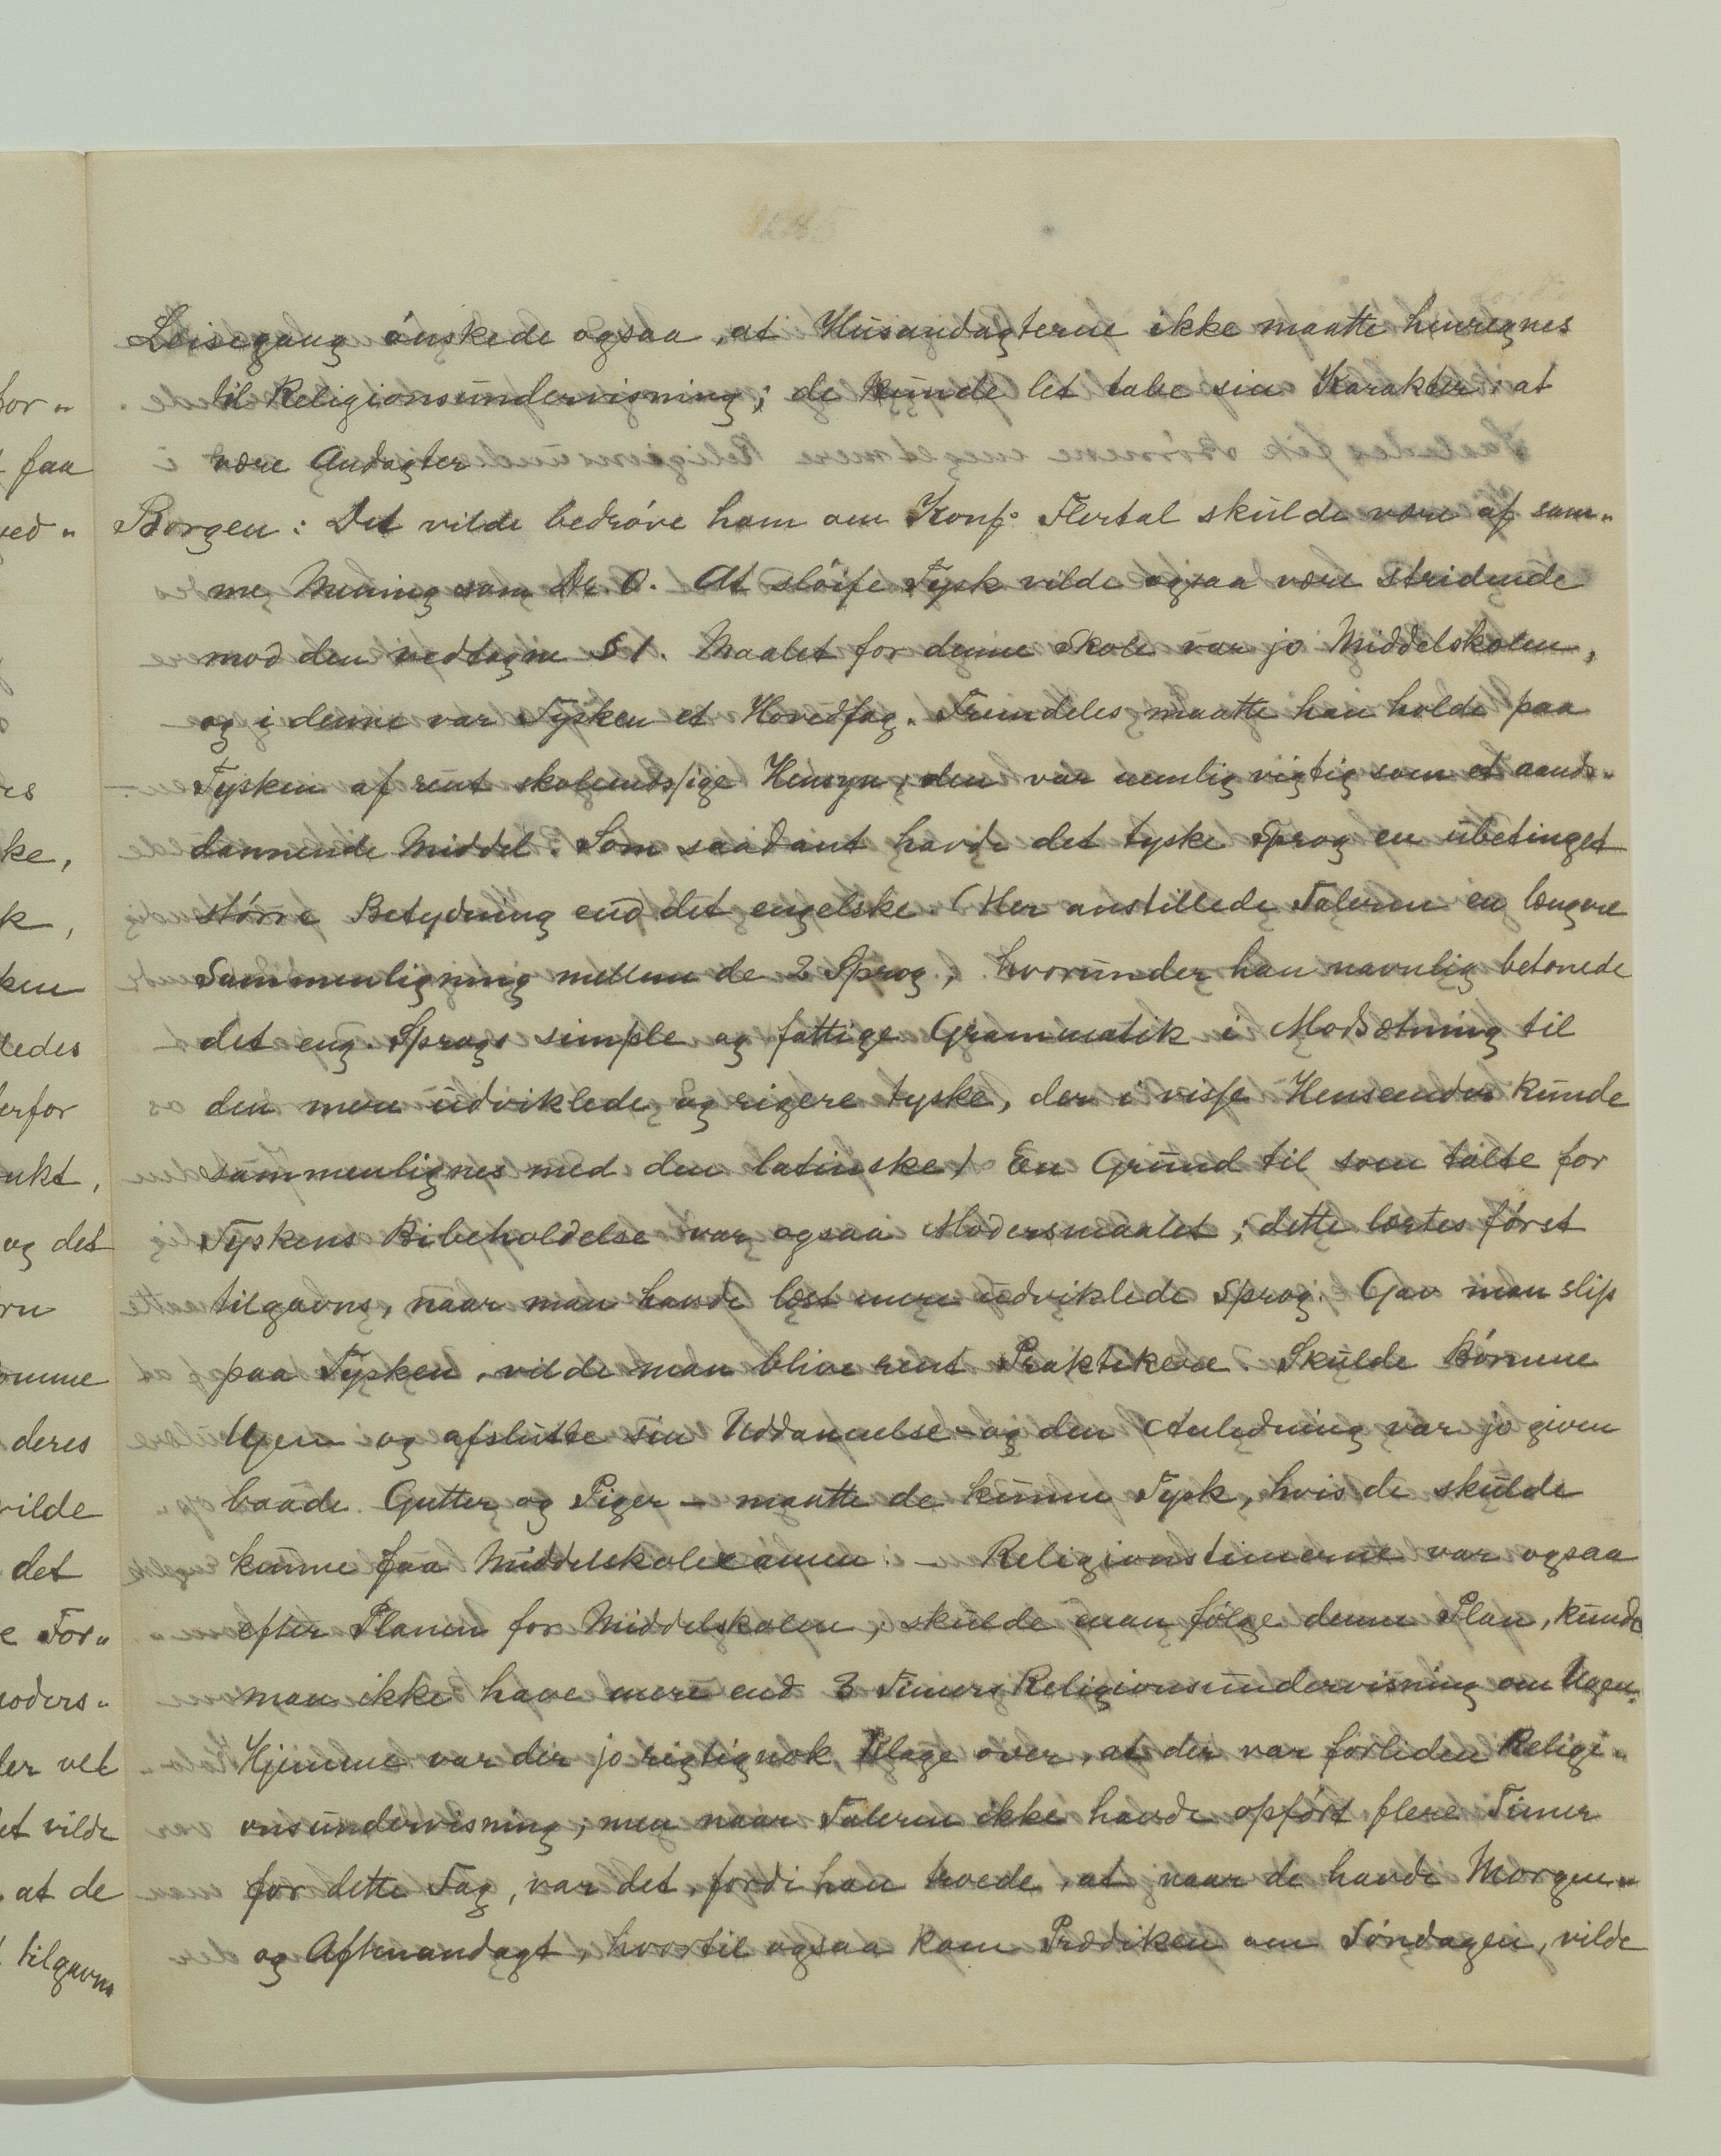 Leisegang ónskede ogsaa, at Husandagterne ikke maatte henregnes
til Religionsundervisning; de kunde let tabe sin Karakter: at
være Andagter
Borgen: Det vilde bedróve ham om Konf. Flertal skulde være af sam„
me Mening som Dr. O. At slóife Tysk vilde ogsaa være stridende
mod den vedtagne § 1. Maalet for denne Skole var jo Middelskolen,
og i denne var Tysken et Hovedfag. Fremdeles maatte han holde paa
Tysken af rent skolemæssige Hensyn; den var nemlig vigtig som et aands„
dannende Middel. Som saadant havde det tyske Sprog en ubetinget
stórre Betydning end det engelske. (Her anstillede Taleren en længere
Sammenligning mellem de 2 Sprog, hvorunder han navnlig betonede
det eng. Sprogs simple og fattige Grammatik i Modsætning til
den mere udviklede og rigere tyske, der i visse Henseender kunde
sammenlignes med den latinske) En Grund til som talte for
Tyskens Bibeholdelse var ogsaa Modersmaalet; dette lærtes fórst
tilgavns, naar man havde læst mere udviklede Sprog. Gav man slip
paa Tysken, vilde man blive rent Praktikere. Skulde Bórnene
hjem og afslutte sin Uddannelse – og den Anledning var jo given
baade Gutter og Piger – maatte de kunne Tysk, hvis de skulde
kunne faa Middelskolexamen. – Religionstimerne var ogsaa
efter Planen for Middelskolen; skulde man fólge denne Plan, kunde
man ikke have mere end 3 Timers Religionsundervisning om Ugen.
Hjemme var der jo rigtignok Klage over, at der var forliden Religi„
onsundervisning; men naar Taleren ikke havde opfórt flere Timer
for dette Fag, var det, fordi han troede, at naar de havde Morgen„
og Aftenandagt, hvortil ogsaa kom Prædiken om Sóndagen, vilde
for„
faa
ved„
ke,
ledes
erfor
ukt,
og det
deres
vilde
det
e For„
oders„
ler vel
et vilde
at de
tilgavns